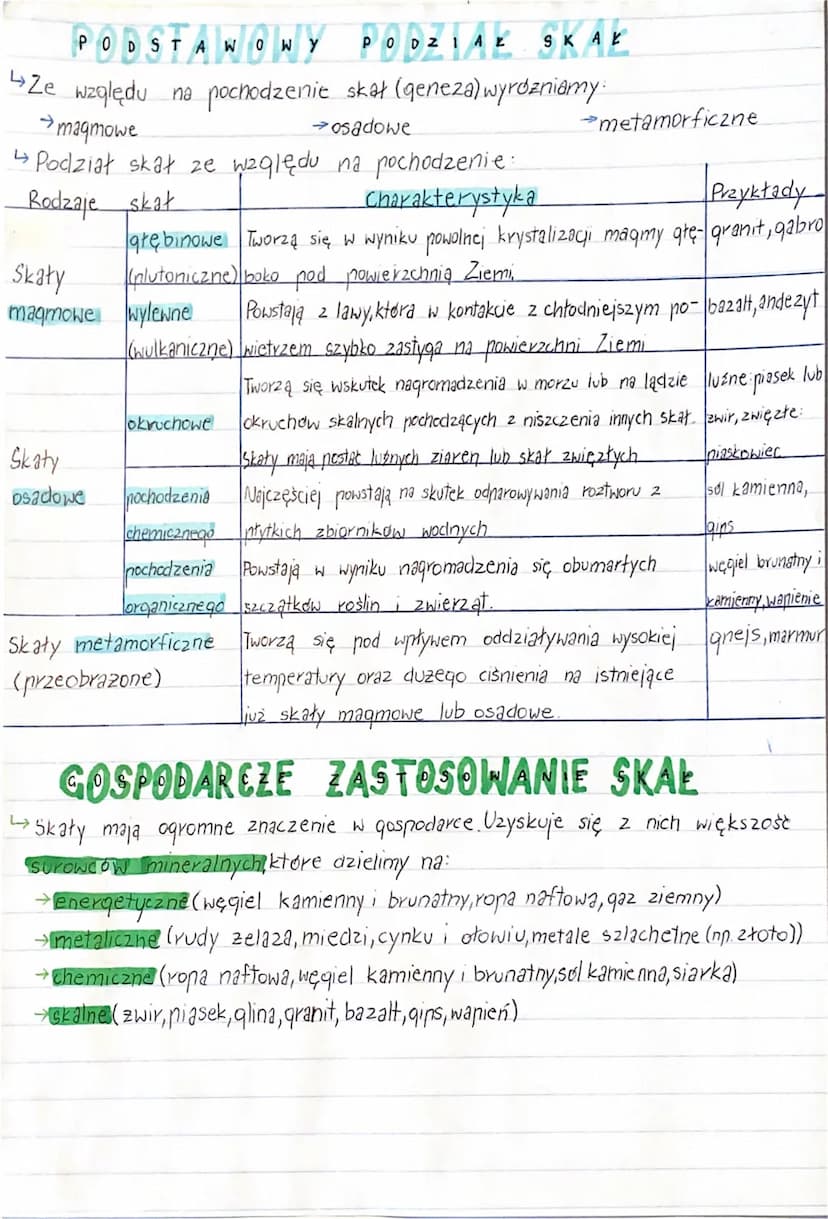 PODSTAWOWY PODZIAŁ SKAŁ
↳Ze względu na pochodzenie skał (geneza) wyróżniamy:
→magmowe →osadowe →metamorficzne
↳Podział skał ze względu na pochodzenie:
Rodzaje skał Charakterystyka Przykłady
głębinowe Tworzą się w wyniku powolnej krystalizacji magmy głę- granit, gabro
Skały (plutoniczne) boko pod powierzchnią Ziemi
magmowe wylewne Powstają z lawy, która w kontakcie z chłodniejszym po- bazalt, andezyt
(wulkaniczne) wietrzem szybko zastyga na powierzchni Ziemi
Tworzą się wskutek nagromadzenia w morzu lub na lądzie luźne: piasek lub
okruchowe okruchów skalnych pochodzących z niszczenia innych skał. żwir, zwięzłe:
Skały Skały mają postać luźnych ziaren lub skał zwięzłych piaskowiec
osadowe pochodzenia Najczęściej powstają na skutek odparowywania roztworu z sól kamienna,
chemicznego płytkich zbiorników wodnych gips
pochodzenia Powstają w wyniku nagromadzenia się obumarłych węgiel brunatny i
organicznego szczątków roślin i zwierząt. kamienny, wapienie
Skały metamorficzne Tworzą się pod wpływem oddziaływania wysokiej gnejs, marmur
(przeobrażone) temperatury oraz dużego ciśnienia na istniejące
już skały magmowe lub osadowe.
GOSPODARCZE ZASTOSOWANIE SKAŁ
↳Skały mają ogromne znaczenie w gospodarce. Uzyskuje się z nich większość
surowców mineralnych, które dzielimy na:
→energetyczne (węgiel kamienny i brunatny, ropa naftowa, gaz ziemny)
→metaliczne (rudy żelaza, miedzi, cynku i ołowiu, metale szlachetne (np. złoto))
→chemiczne (ropa naftowa, węgiel kamienny i brunatny, sól kamienna, siarka)
→skalne (żwir, piasek, glina, granit, bazalt, gips, wapień)